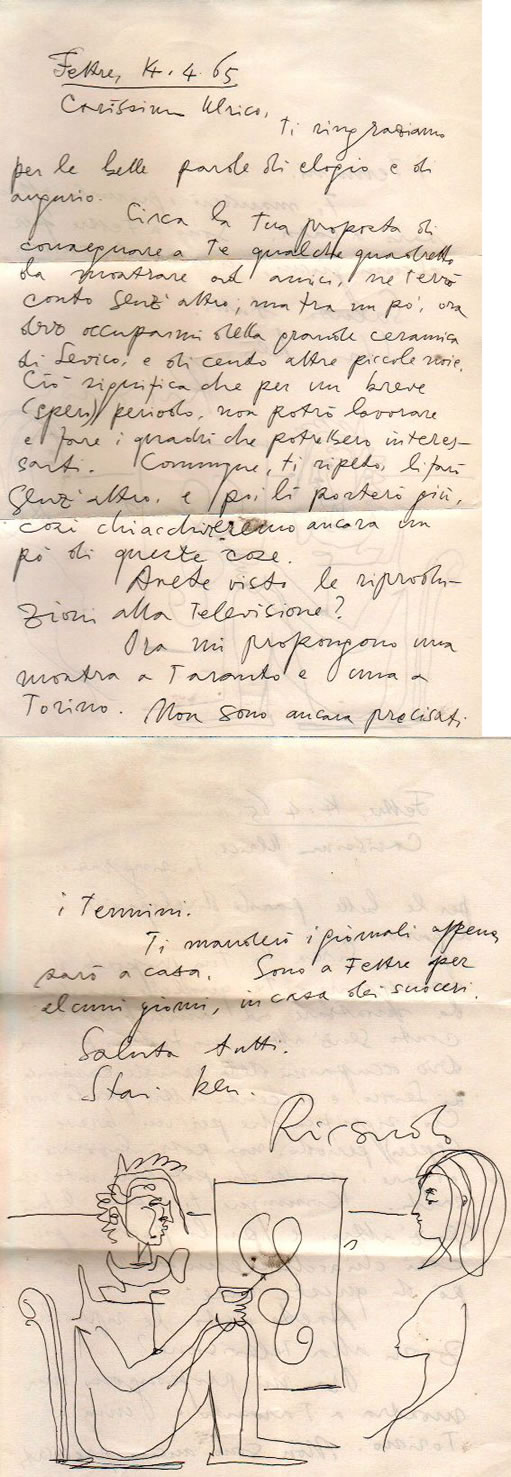 Feltre, 14.4.65
Carissimo Ulrico,
ti ringraziamo
per le belle parole di elogio e di
augurio.
Circa la tua proposta di
consegnare a te qualche quadretto
da mostrare ad amici, ne terrò
conto senz'altro, ma tra un po', ora
devo occuparmi della grande ceramica
di Levico, e di cento altre piccole noie.
Ciò significa che per un breve
(spero) periodo, non potrò lavorare
e fare i quadri che potrebbero interes-
sarti. Comunque, ti ripeto, li farò
senz'altro, e poi li porterò giù,
così chiacchiereremo ancora un
pò di queste cose.
Avete visto le riprodu-
zioni alla Televisione?
Ora mi propongono una
mostra a Taranto e una a
Torino. Non sono ancora precisati
i Termini.
Ti manderò i giornali appena
sarò a casa. Sono a Feltre per
alcuni giorni, in casa dei suoceri.
Saluta tutti.
Stai ben.